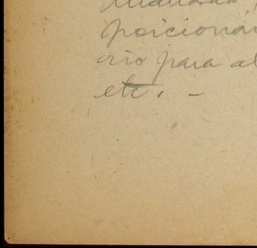 posicionar
rio para al
etc. -